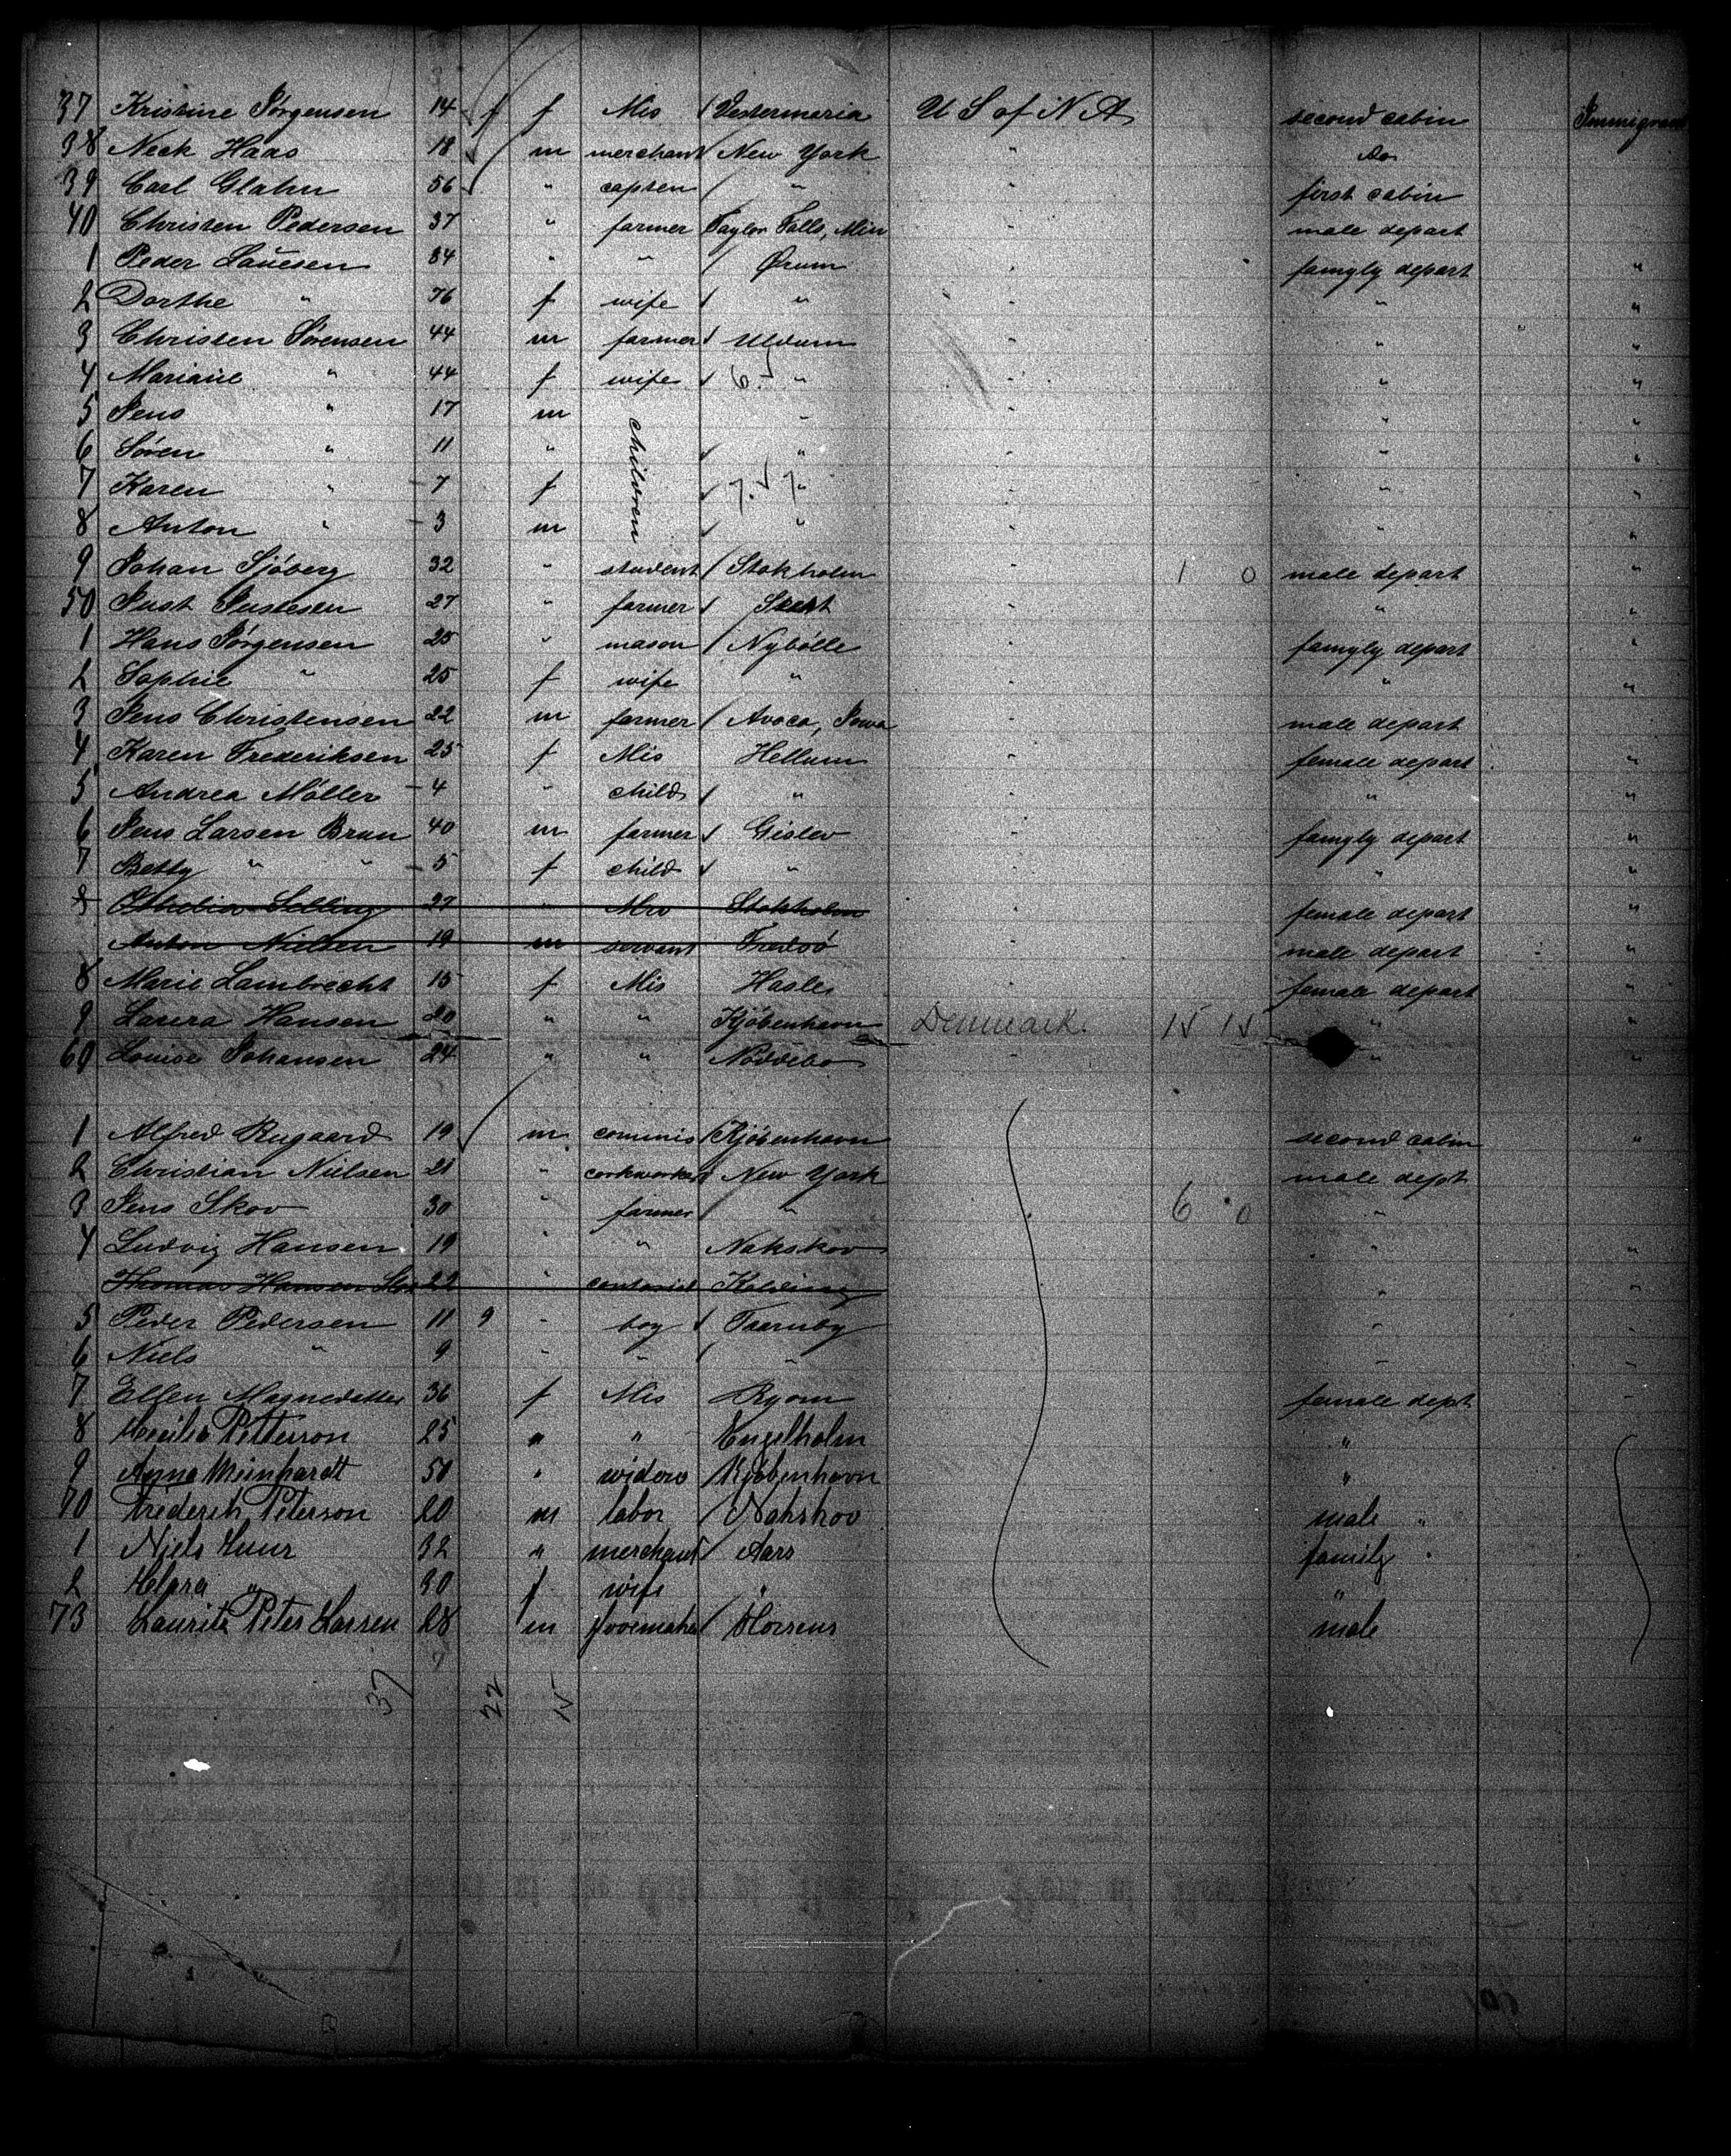 37 Kristine Jørgensen 14 f f Mis Vestermaria U S of N A second cabin
38 Neck Haas 18 m merchant New York " do
39 Carl Glahn 56 " capten " " first cabin
40 Christen Pedersen 37 " farmer Taylor Falls, Min " male depart
1 Peder Lauesen 84 " " Ørum " famyly depart "
2 Dorthe " 76 f wife " " " "
3 Christen Sørensen 44 m farmer Uldum " " "
4 Mariane " 44 f wife 6. " " " "
5 Jens " 17 m children " " " "
6 Søren " 11 " " " " "
7 Karen " 7 f 7. 7 " " " "
8 Anton " 3 m " " " "
9 Johan Sjöberg 32 " student Stokholm " 1 0 male depart "
50 Just Justesen 27 " farmer " " "
1 Hans Jørgensen 25 " mason Nybölle " famyly depart "
2 Sophie " 25 f wife " " " "
3 Jens Christensen 22 m farmer Avoca, Iowa " male depart
4 Karen Frederiksen 25 f Mis Hellum " female depart "
5 Andrea Möller 4 " child " " " "
6 Jens Larsen Brun 40 m farmer Gislev " famyly depart "
7 Betty " " 5 f child " " " "
8 Selling 27 " Mrs Stokholm " female depart "
Anton Nielsen 19 m servant " male depart "
8 Marie Lambrecht 15 f Mis Hasle " female depart "
9 Laura Hansen 20 " " Kjøbenhavn Denmark. 15 15 " "
60 Louise Johansen 24 " " Nøddebo " " "
1 Alfred Rugaard 19 m commis Kjøbenhavn second cabin "
2 Christian Nielsen 21 " corkworker New York male dept
3 Jens Skov 30 " farmer " 6 0 "
4 Ludvig Hansen 19 " " Nakskov " "
Thomas Hansen 22 " Kolding " "
5 Peder Pedersen 11 9 " boy Taarnby " "
6 Niels " 9 " " " " "
7 Ellen 36 f Mis Ryom female dept "
8 Cecilie Petterson 25 " " Engelholm "
9 Anna Meinhardt 50 " widow Kjøbenhavn "
70 Frederik Peterson 20 m labor Nakskov male "
1 Niels 32 " merchant Aars family "
2 Klara " 30 f wife " "
73 Laurits Peter Larsen 28 m Horsens male
37 22 15